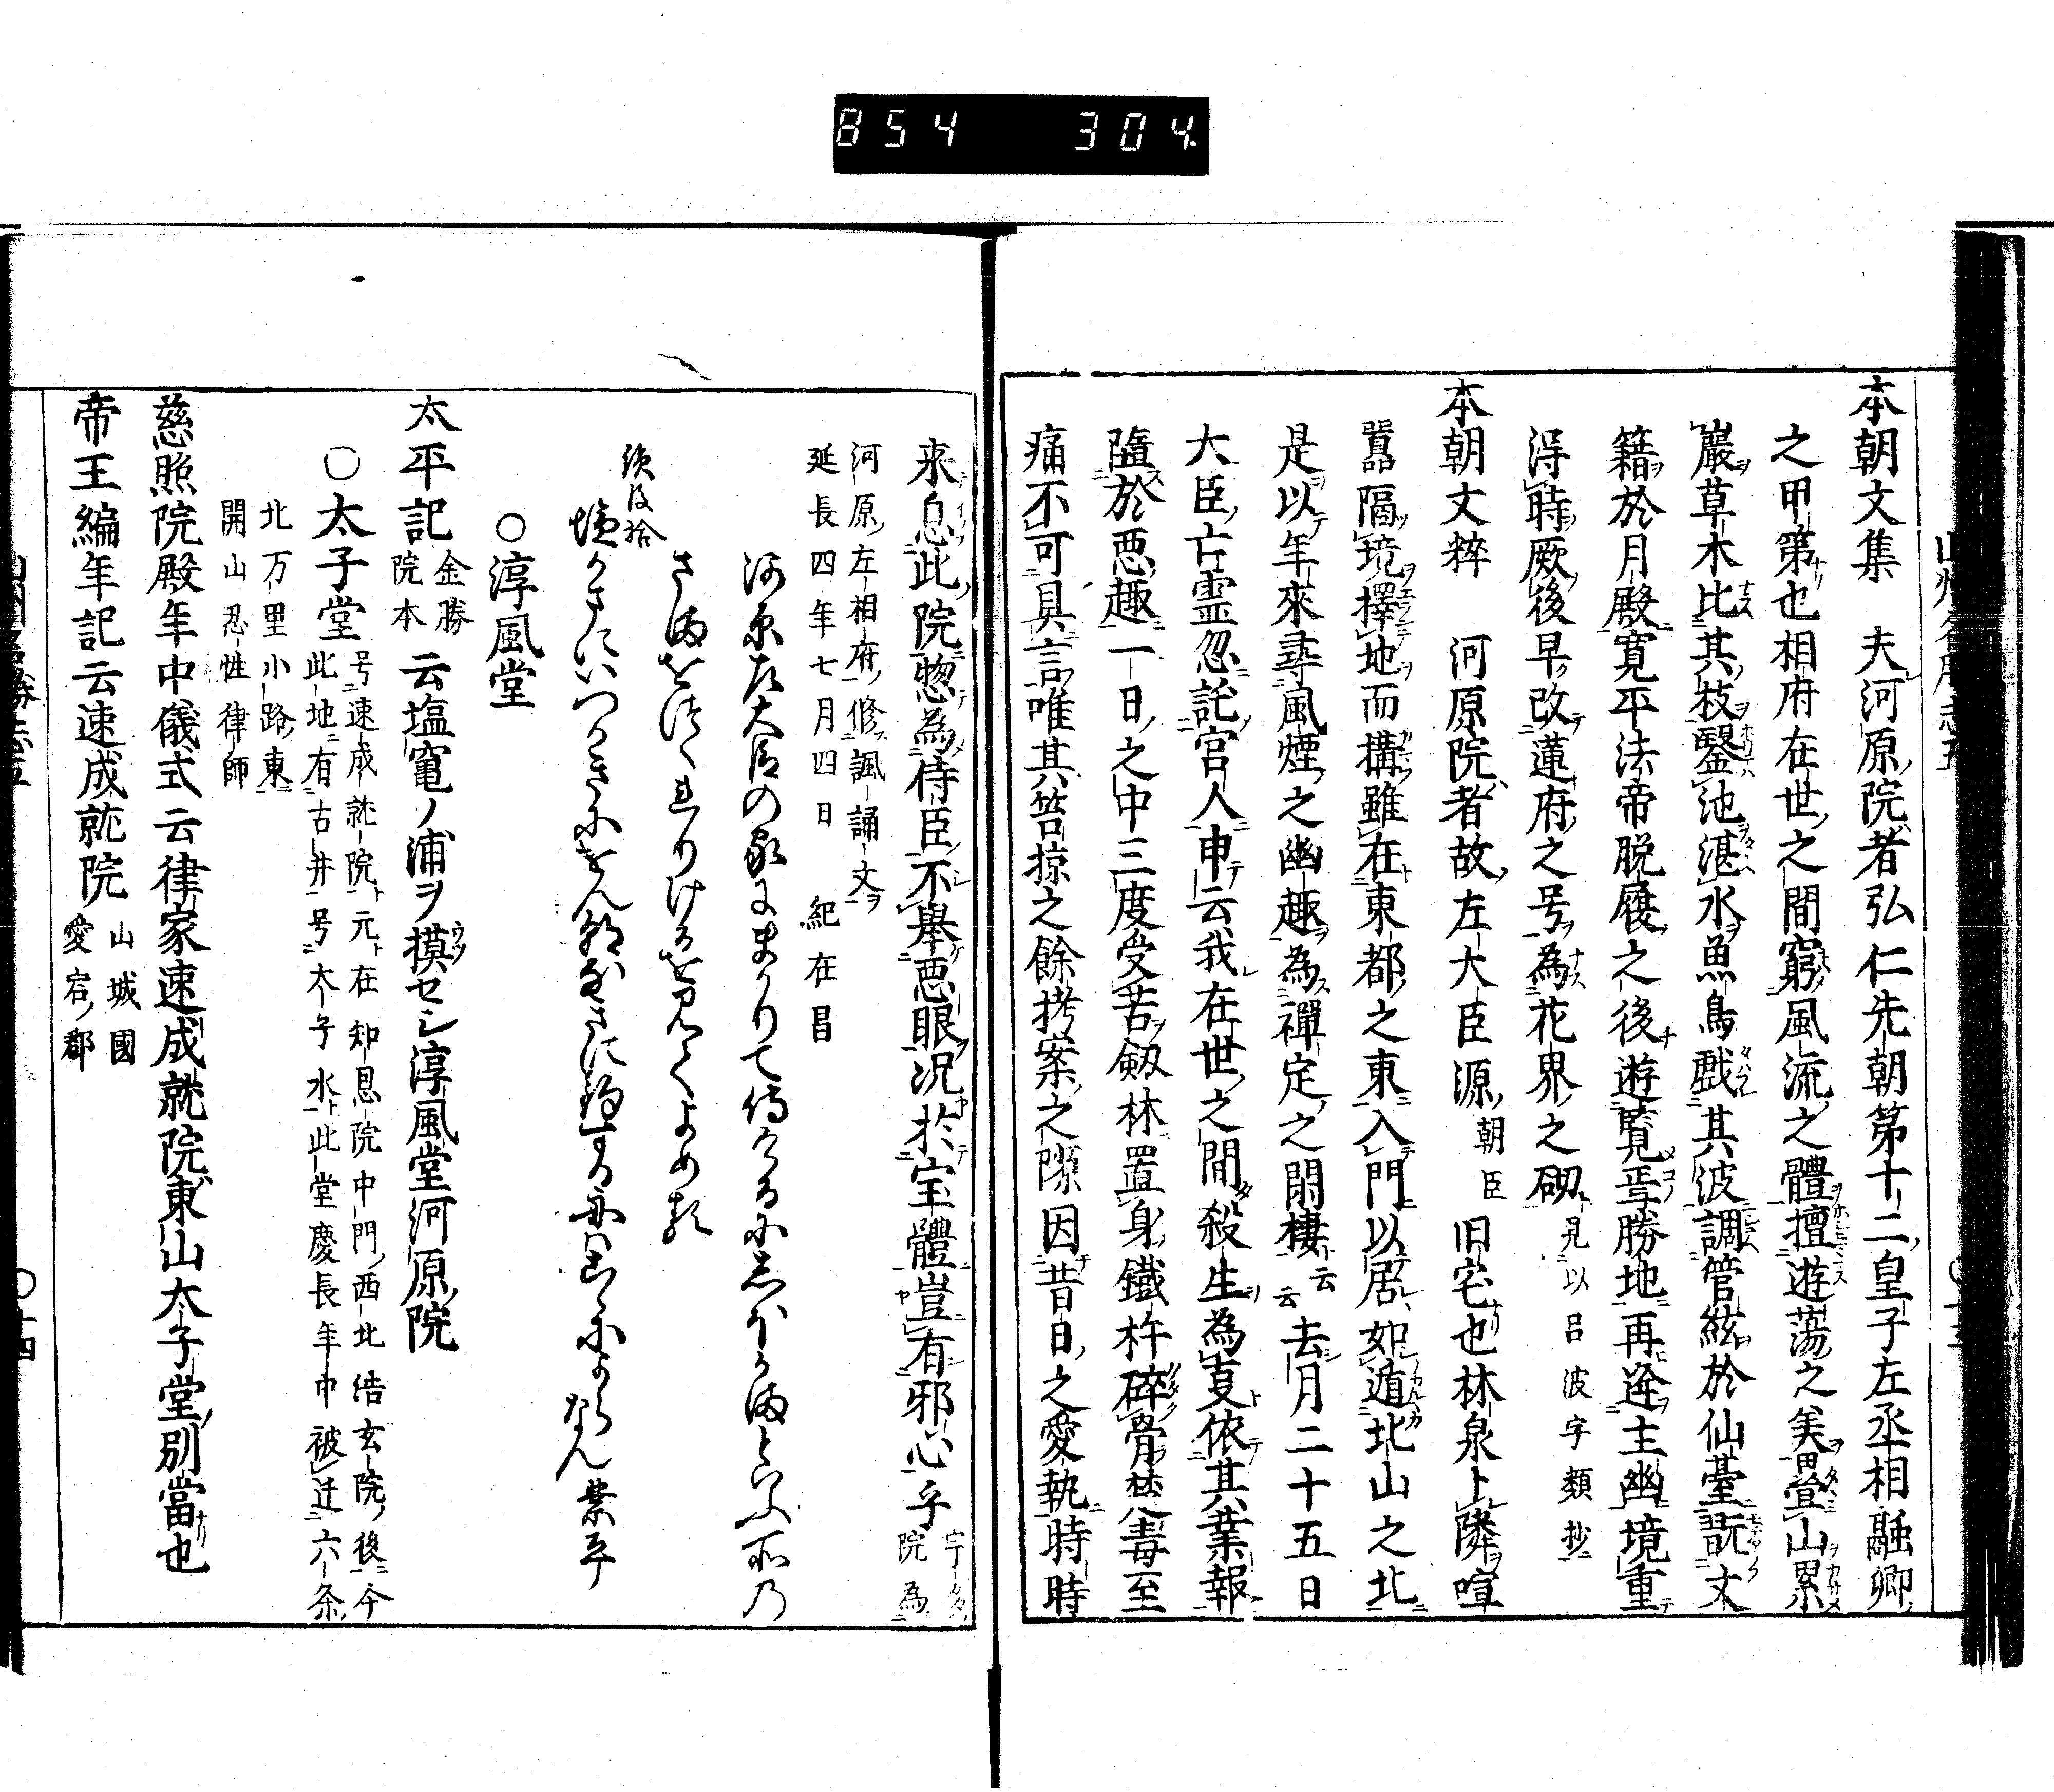 854 304
本朝文集 夫河原院者弘仁先朝第十二皇子左丞相融卿
之甲第也相府在世之間窮風流之體擅遊蕩之美疊山累
巖草木比其枝鑿池湛水魚鳥戯其波調管絃於仙臺翫文
籍於月殿寛平法帝脱屣之後遊覧焉勝地再逢主幽境重
得時厥後早改蓮府之号為花界之砌 見以呂波字類抄
本朝文粹 河原院者故左大臣源 朝臣 旧宅也林泉卜隣喧
囂隔境擇地而搆雖在東都之東入門以居如遁北山之北
是以年來尋風煙之幽趣為禪定之閑棲 云云 去月二十五日
大臣亡霊忽託宮人申云我在世之間殺生為㕝依其業報
墮於悪趣一日之中三度受苦劔林置身鐵杵碎骨楚毒至
痛不可具言唯其笞掠之餘拷案之隙因昔日之愛執時時
來息此院惣為侍臣不舉悪眼况於宝體豈有邪心乎 宇タ院為
河原左相府修諷誦文
延長四年七月四日 紀在昌
河原左大臣の家にまかりて侍ける
塩かまにいつかきにけん 業平
○淳風堂
太平記 金勝院本 云塩竃ノ浦ヲ摸セシ淳風堂河原院
○太子堂 号速成就院元在知恩院中門西北浩玄院後今
此地有古井号太子水此堂慶長年中被迁六条
北万里小路東
開山忍性律師
慈照院殿年中儀式云律家速成就院東山太子堂別當也
帝王編年記云速成就院 山城國愛宕郡